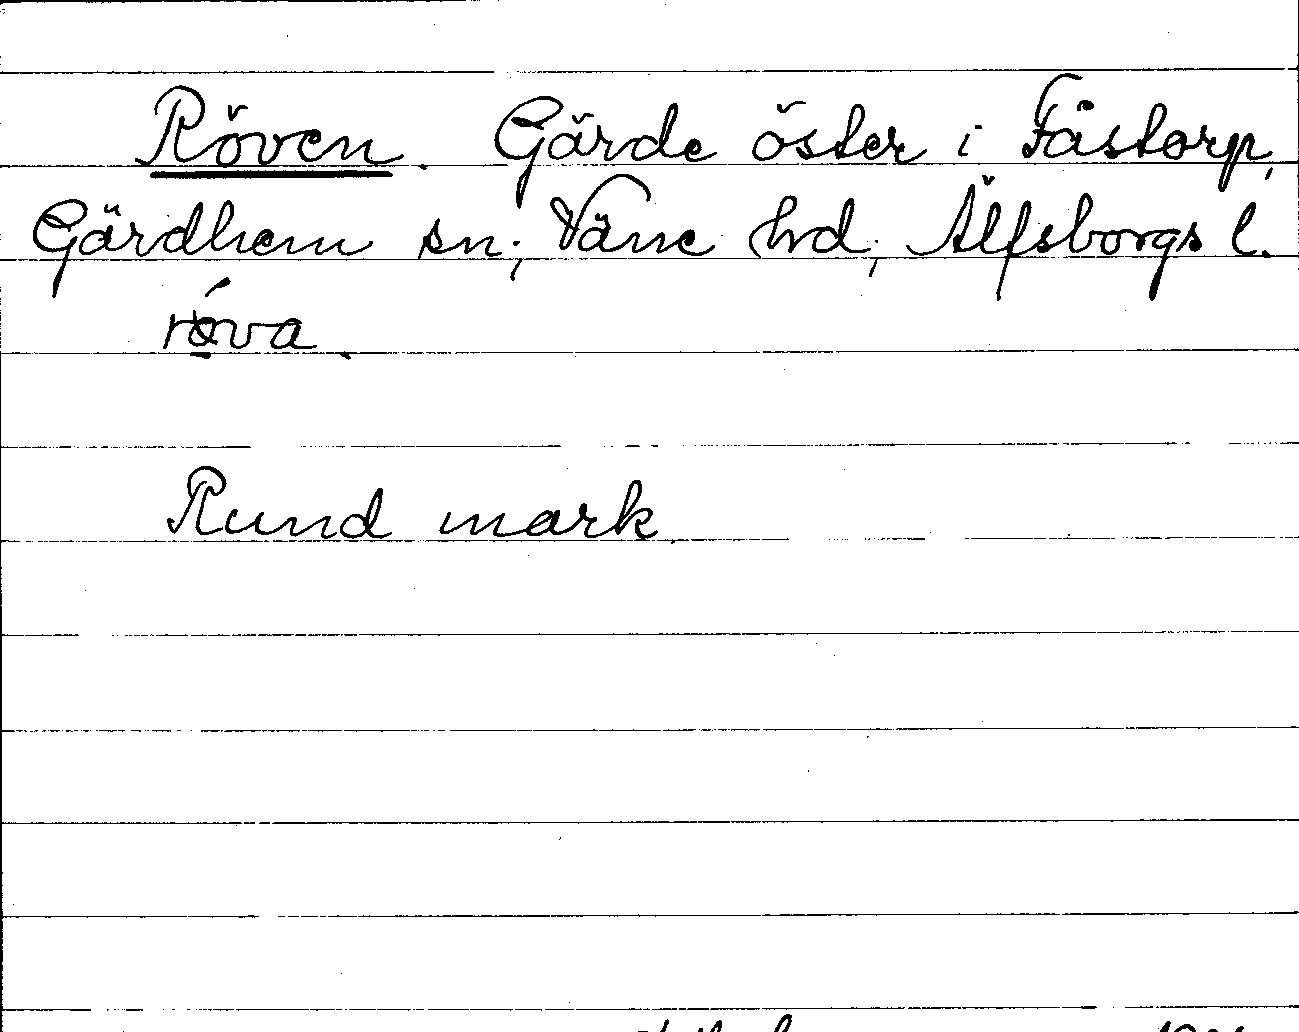 Röven. Gärde öster i Fåstorp,
Gärdhem sn; Väne hd; Älfsborgs l.
Rund mark